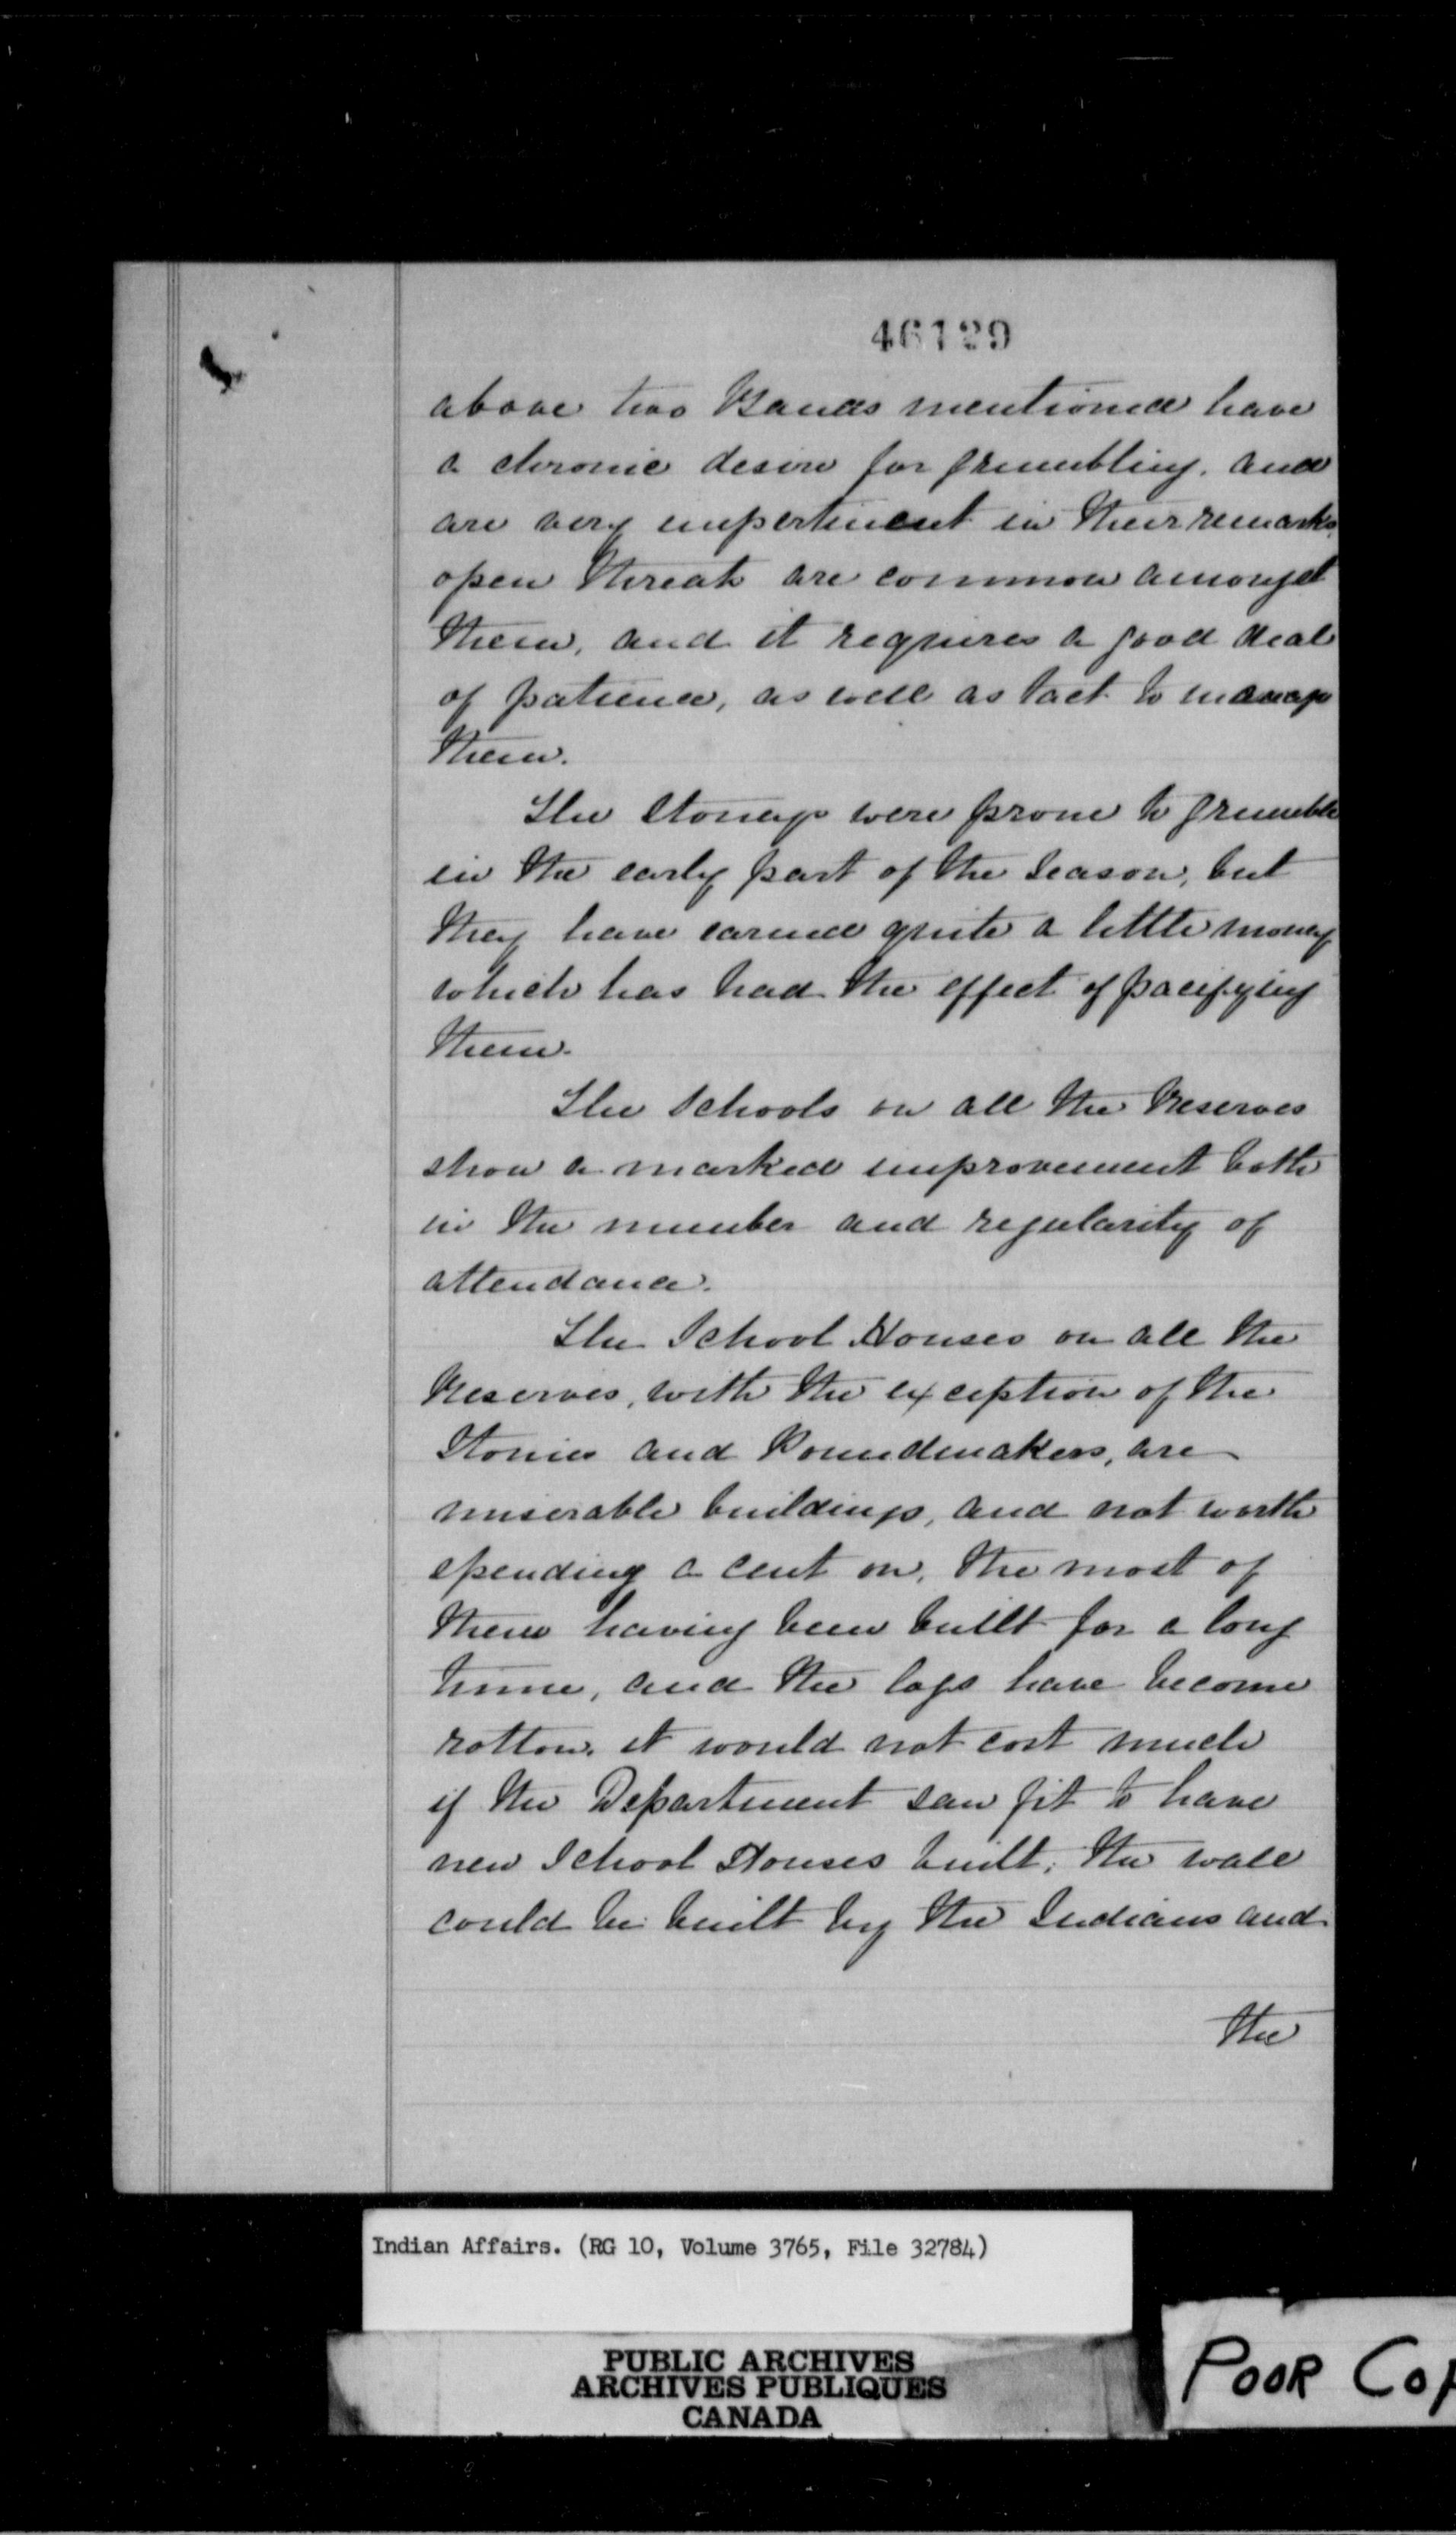 46129
above two Bands mentioned have
a chronic desire for grumbling. and
are very impertinent in their remarks,
open threats are common amongst
them, and it requires a good deal
of patience, as well as tact to manage
them.
The Stoneys were prone to grumble
in the early part of the season, but
they have earned quite a little money
which has had the effect of pacifying
them.
The Schools on all the Reserves
show a marked improvement both
in the number and regularity of
attendance.
The School Houses on all the
Reserves, with the exception of the
Stonies and Poundmakers, are
miserable buildings, and not worth
spending a cent on, the most of
them having been built for a long
time, and the logs have become
rotton. it would not cost much
if the Department saw fit to have
new School Houses built; the wall
could be built by the Indians and
the
Indian Affairs. (RG 10, Volume 3765, File 32784)
PUBLIC ARCHIVES
ARCHIVES PUBLIQUES
CANADA
POOR COP